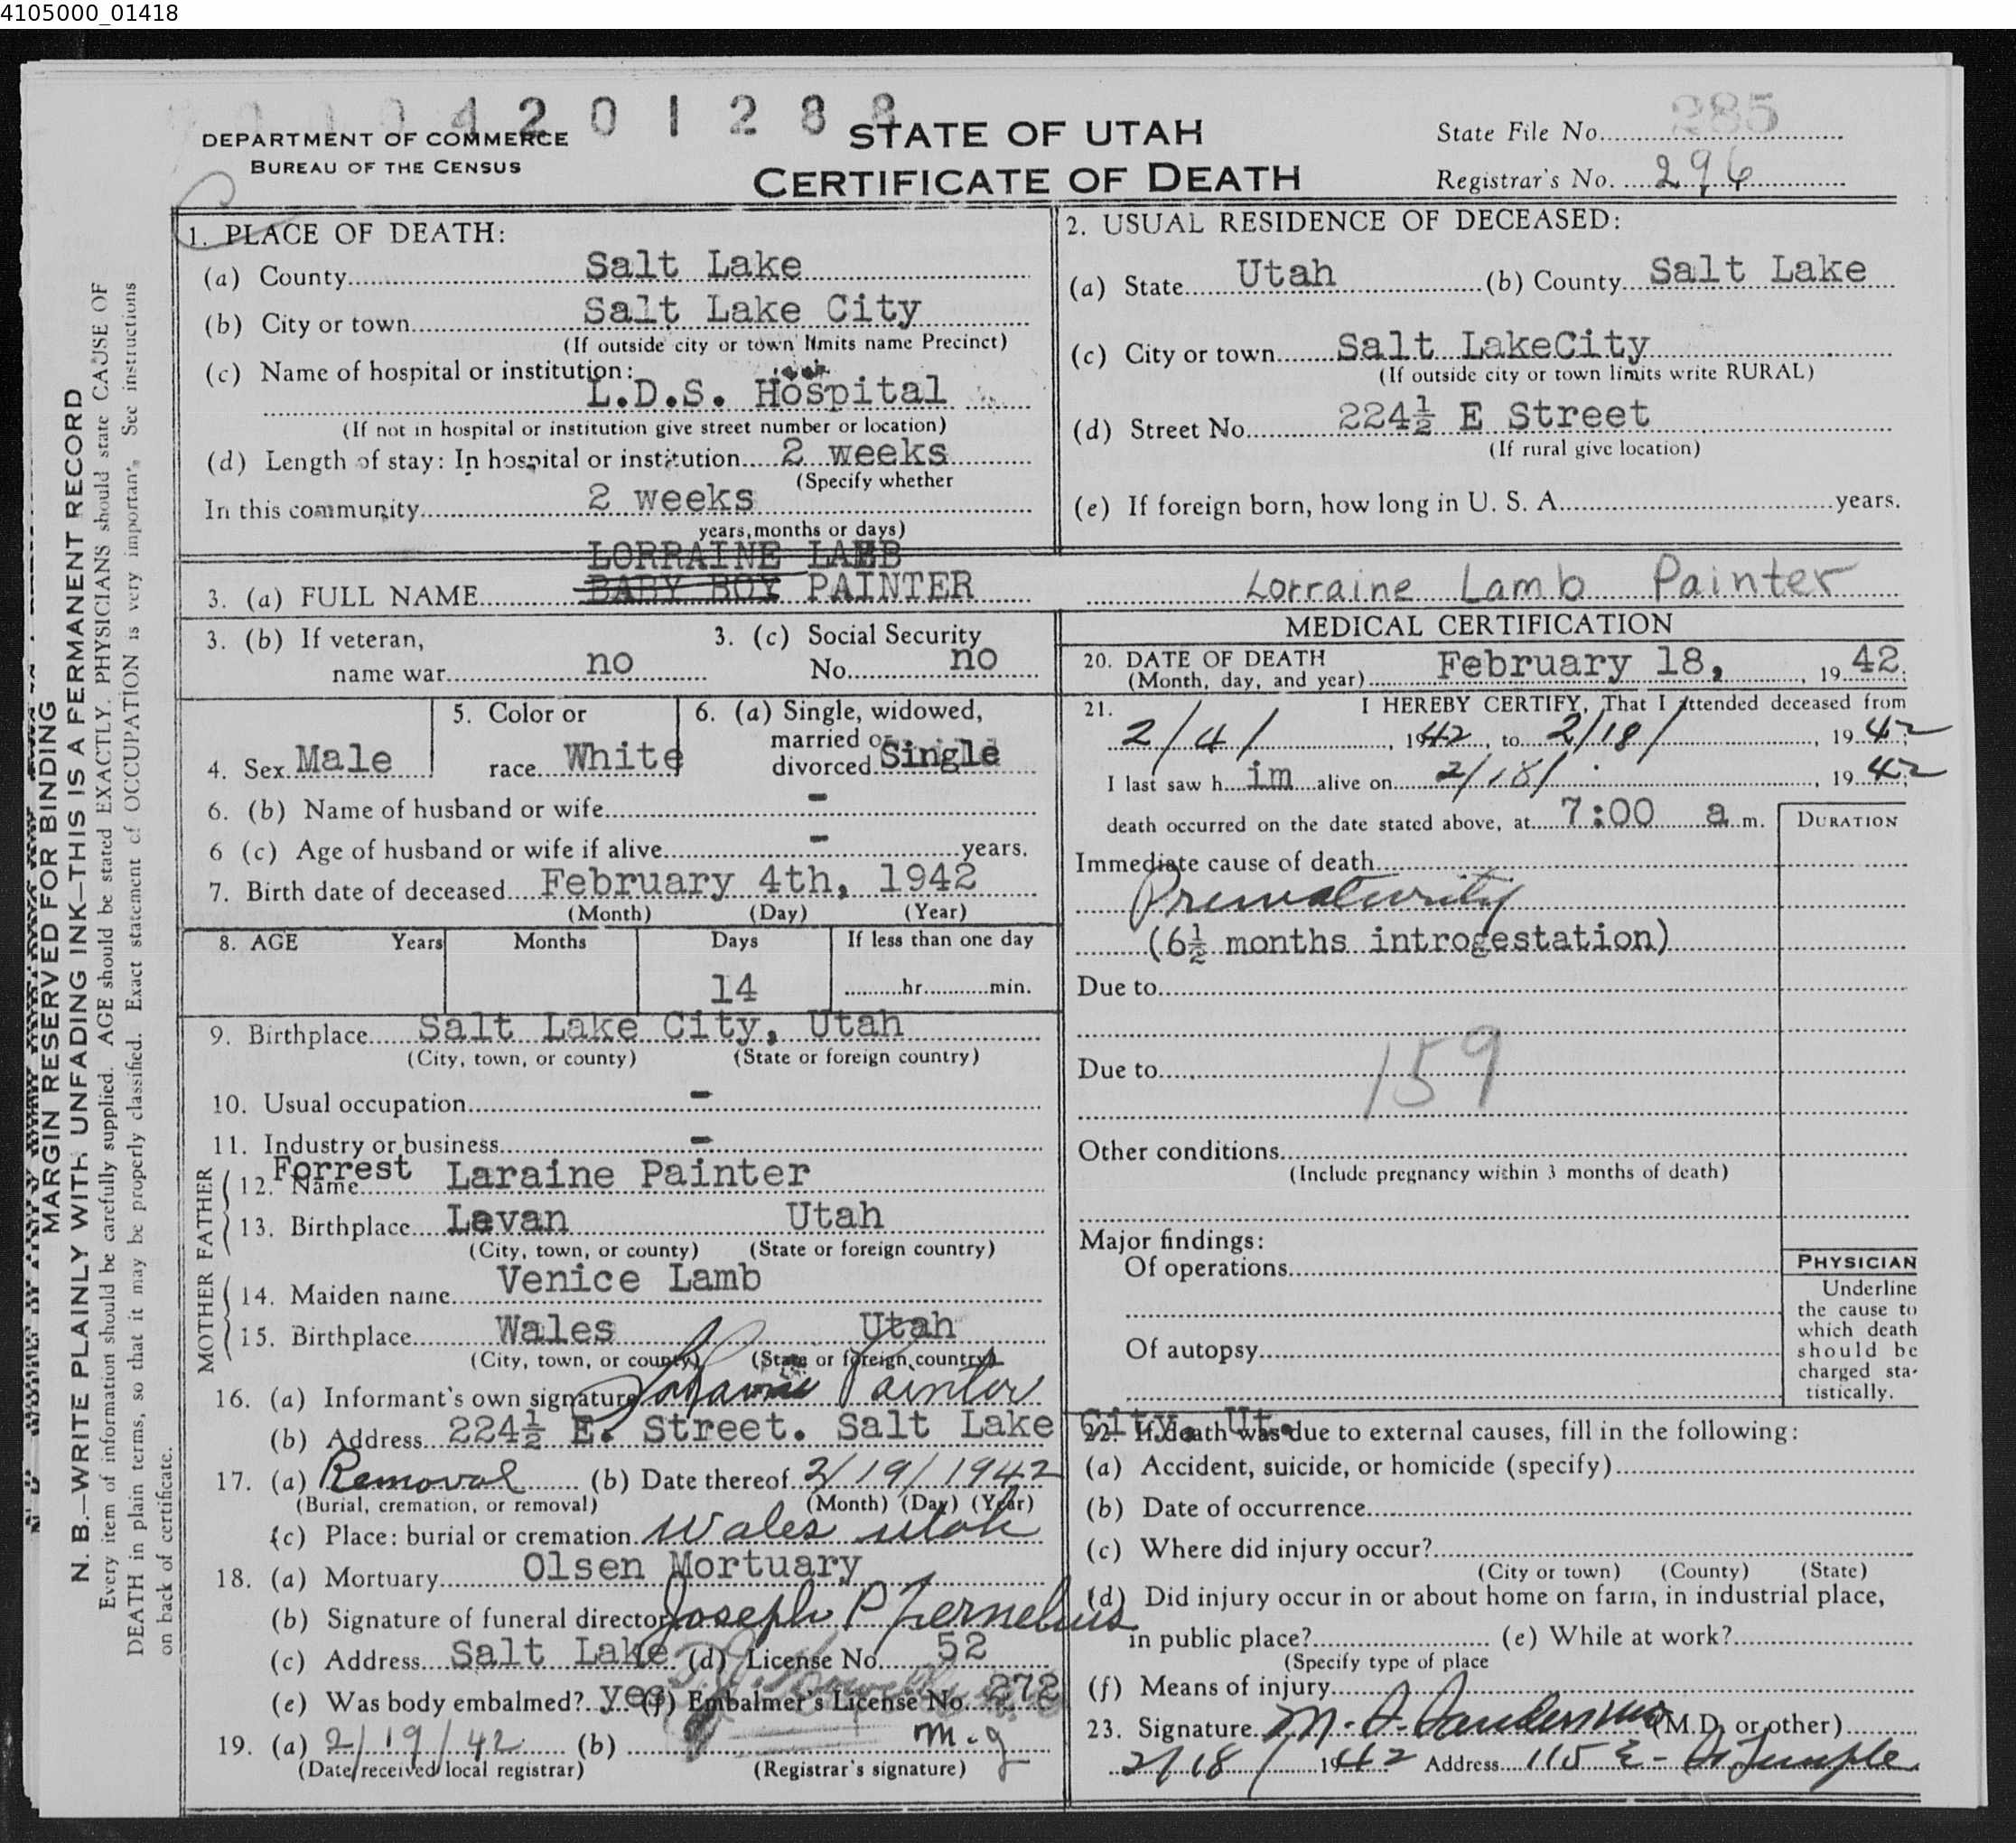 4105000_01418
4201288
285
DEPARTMENT OF COMMERCE
BUREAU OF THE CENSUS
STATE OF UTAH
CERTIFICATE OF DEATH
State File No.
Registrar's No. 296
1. PLACE OF DEATH:
(a) County Salt Lake
(b) City or town Salt Lake City
(If outside city or town limits name Precinct)
(c) Name of hospital or institution:
L.D.S. Hospital
(If not in hospital or institution give street number or location)
(d) Length of stay: In hospital or institution 2 weeks
(Specify whether
In this community 2 weeks
years, months or days)
2. USUAL RESIDENCE OF DECEASED:
(a) State Utah (b) County Salt Lake
(c) City or town Salt LakeCity
(If outside city or town limits write RURAL)
(d) Street No. 224½ E Street
(If rural give location)
(e) If foreign born, how long in U. S. A. years.
LORRAINE LAMB
3. (a) FULL NAME BABY BOY PAINTER Lorraine Lamb Painter
3. (b) If veteran,
name war no
3. (c) Social Security
No. no
4. Sex Male
5. Color or
race White
6. (a) Single, widowed,
married or
divorced Single
6. (b) Name of husband or wife -
6 (c) Age of husband or wife if alive - years.
7. Birth date of deceased February 4th, 1942
(Month) (Day) (Year)
8. AGE Years Months Days If less than one day
14 hr. min.
9. Birthplace Salt Lake City, Utah
(City, town, or county) (State or foreign country)
10. Usual occupation -
11. Industry or business -
FATHER
12. Name Forrest Laraine Painter
13. Birthplace Levan Utah
(City, town, or county) (State or foreign country)
MOTHER
14. Maiden name Venice Lamb
15. Birthplace Wales Utah
(City, town, or county) (State or foreign country)
16. (a) Informant's own signature Painter
(b) Address 224½ E. Street. Salt Lake City. Ut.
17. (a) Removal (b) Date thereof 2/19/1942
(Burial, cremation, or removal) (Month) (Day) (Year)
(c) Place: burial or cremation Wales Utah
18. (a) Mortuary Olsen Mortuary
(b) Signature of funeral director Joseph P
(c) Address Salt Lake (d) License No. 52
(e) Was body embalmed? yes (f) Embalmer's License No. 272
19. (a) 2/19/42 (b) m.g
(Date received local registrar) (Registrar's signature)
MEDICAL CERTIFICATION
20. DATE OF DEATH
(Month, day, and year) February 18, , 19 42.
21. I HEREBY CERTIFY, That I attended deceased from
2/4/, 1942, to 2/18/, 19 42;
I last saw h im alive on 2/18/, 19 42;
death occurred on the date stated above, at 7:00 a m.
DURATION
Immediate cause of death
Prematurity
(6½ months introgestation)
Due to
159
Due to
Other conditions
(Include pregnancy within 3 months of death)
Major findings:
Of operations
Of autopsy
PHYSICIAN
Underline
the cause to
which death
should be
charged sta-
tistically.
22. If death was due to external causes, fill in the following:
(a) Accident, suicide, or homicide (specify)
(b) Date of occurrence
(c) Where did injury occur?
(City or town) (County) (State)
(d) Did injury occur in or about home on farm, in industrial place,
in public place? (e) While at work?
(Specify type of place
(f) Means of injury
23. Signature (M.D. or other)
2/18/ 1942 Address 115 E- Temple
MARGIN RESERVED FOR BINDING
N. B.—WRITE PLAINLY WITH UNFADING INK—THIS IS A PERMANENT RECORD
Every item of information should be carefully supplied. AGE should be stated EXACTLY. PHYSICIANS should state CAUSE OF
DEATH in plain terms, so that it may be properly classified. Exact statement of OCCUPATION is very important. See instructions
on back of certificate.